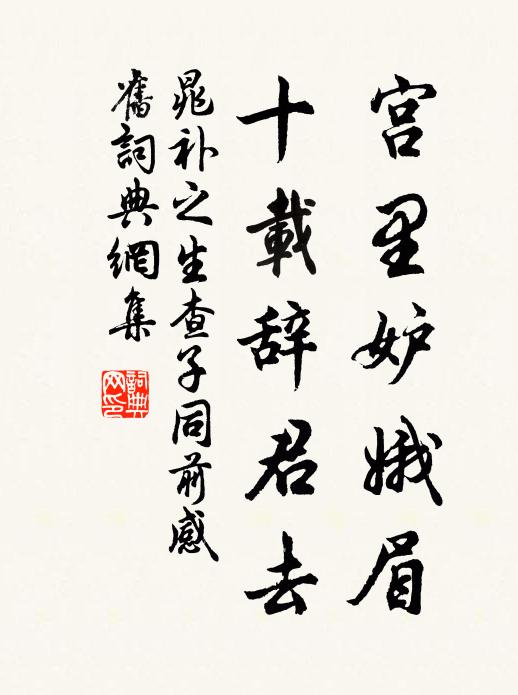 宫里妒娥眉
十載辞君去
晁补之生查子同前感
舊詞典網集
詞典网印